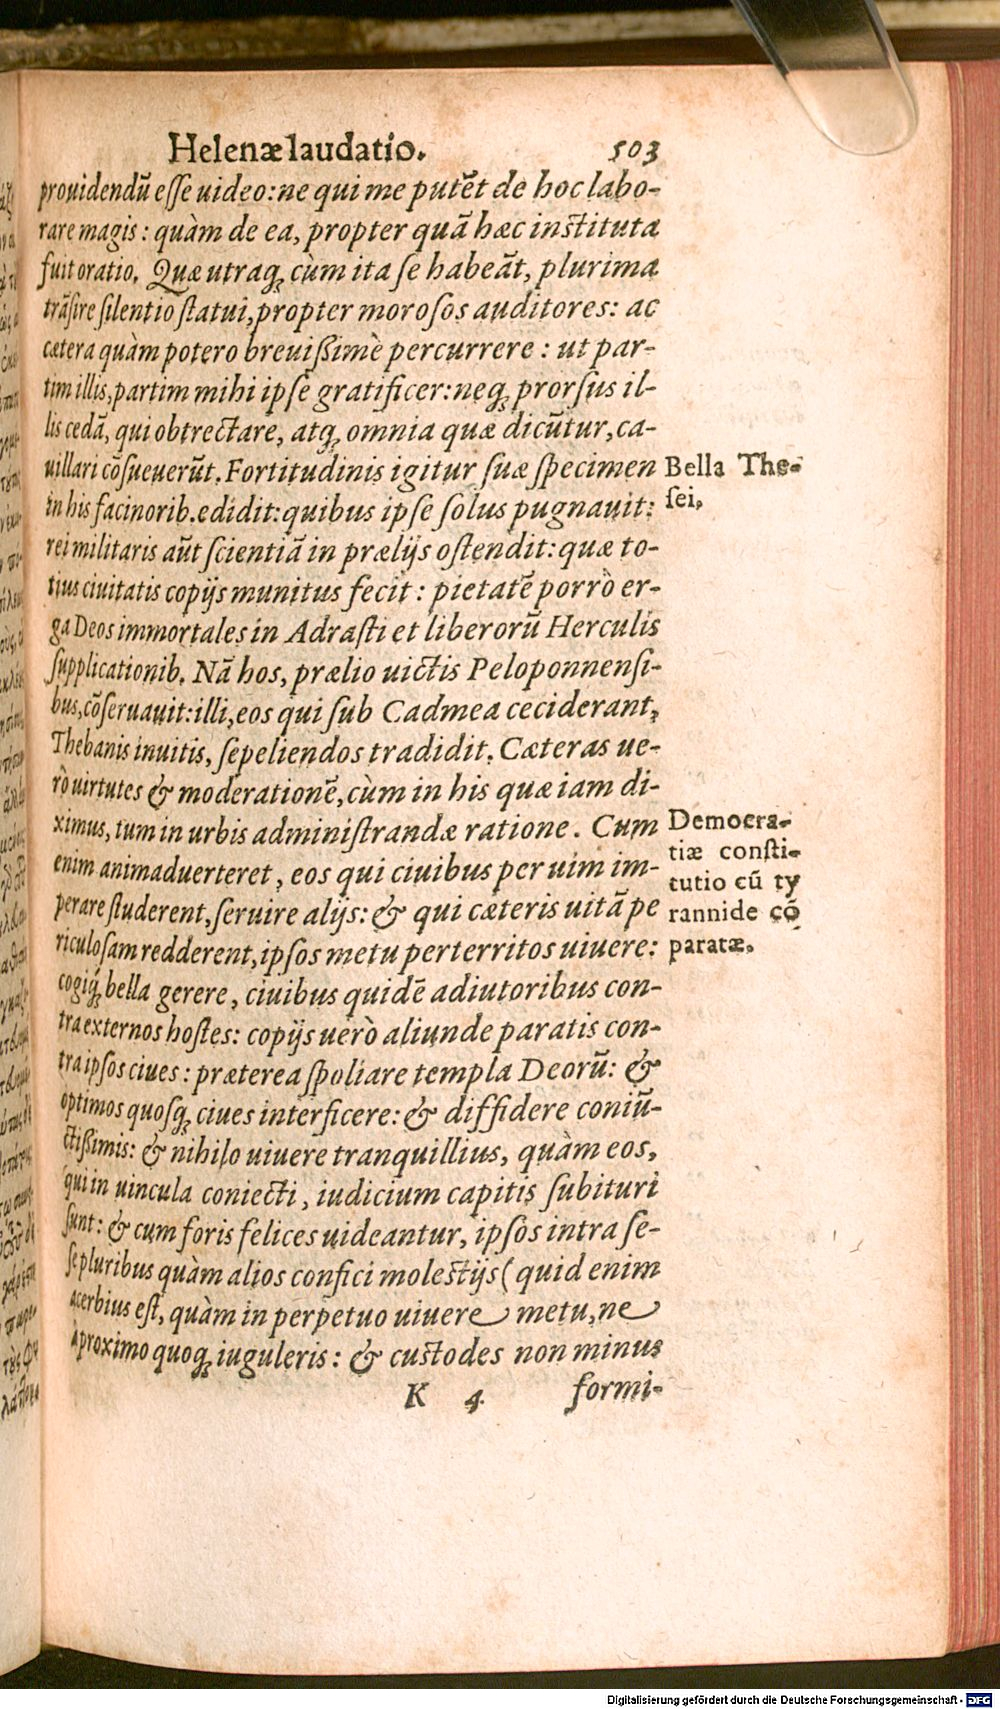 Helenæ laudatio. 503
prouidendū esse uideo: ne qui me putēt de hoc labo-
rare magis: quàm de ea, propter quā hæc instituta
fuit oratio. Quæ utraq; cùm ita se habeāt, plurima
trāsire silentio statui, propter morosos auditores: ac
cætera quàm potero breuißimè percurrere: ut par-
tim illis, partim mihi ipse gratificer: neq; prorsus il-
lis cedā, qui obtrectare, atq; omnia quæ dicūtur, ca-
uillari cōsueuerūt. Fortitudinis igitur suæ specimen
in his facinorib. edidit: quibus ipse solus pugnauit:
rei militaris aūt scientiā in prælijs ostendit: quæ to-
tius ciuitatis copijs munitus fecit: pietatē porrò er-
ga Deos immortales in Adrasti et liberorū Herculis
supplicationib. Nā hos, prælio uictis Peloponnensi-
bus, cōseruauit: illi, eos qui sub Cadmea ceciderant,
Thebanis inuitis, sepeliendos tradidit. Cæteras ue-
rò uirtutes & moderationē, cùm in his quæ iam di-
ximus, tum in urbis administrandæ ratione. Cum
enim animaduerteret, eos qui ciuibus per uim im-
perare studerent, seruire alijs: & qui cæteris uitā pe
riculosam redderent, ipsos metu perterritos uiuere:
cogiq́; bella gerere, ciuibus quidē adiutoribus con-
tra externos hostes: copijs uerò aliunde paratis con-
tra ipsos ciues: præterea spoliare templa Deorū: &
optimos quosq; ciues interficere: & diffidere coniū-
ctißimis: & nihilo uiuere tranquillius, quàm eos,
qui in uincula coniecti, iudicium capitis subituri
sunt: & cum foris felices uideantur, ipsos intra se-
se pluribus quàm alios confici molestijs (quid enim
acerbius est, quàm in perpetuo uiuere metu, ne
à proximo quoq; iuguleris: & custodes non minus
K 4 formi-
Bella The-
sei.
Democra-
tiæ consti-
tutio cū ty
rannide cō
paratæ.
Digitalisierung gefördert durch die Deutsche Forschungsgemeinschaft - DFG